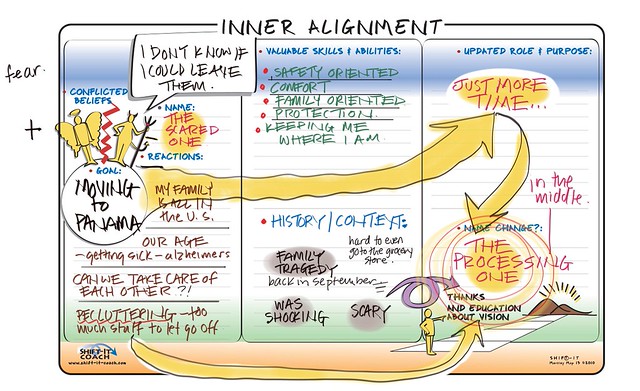 INNER ALIGNMENT
fear.
+
I DON'T KNOW IF
I COULD LEAVE
THEM.
• CONFLICTED
BELIEFS
• NAME:
THE
SCARED
ONE
• REACTIONS:
• GOAL:
MOVING
to
PANAMA
MY FAMILY
IS ALL IN
the U.S.
OUR AGE
- getting sick - alzheimers
CAN WE TAKE CARE of
EACH OTHER ?!
DECLUTTERING - too
much stuff to let go off
• VALUABLE SKILLS & ABILITIES:
• SAFETY ORIENTED
• COMFORT
• FAMILY ORIENTED
• PROTECTION
• KEEPING ME
WHERE I AM.
• HISTORY/CONTEXT:
FAMILY
TRAGEDY
back in september
hard to even
go to the grocery
store.
WAS
SHOCKING
SCARY
• UPDATED ROLE & PURPOSE:
JUST MORE
TIME...
in the
middle.
• NAME CHANGE?:
THE
PROCESSING
ONE
THANKS
AND EDUCATION
ABOUT VISION
SHIFT-IT
COACH
www.shift-it-coach.com
SHIFT-IT